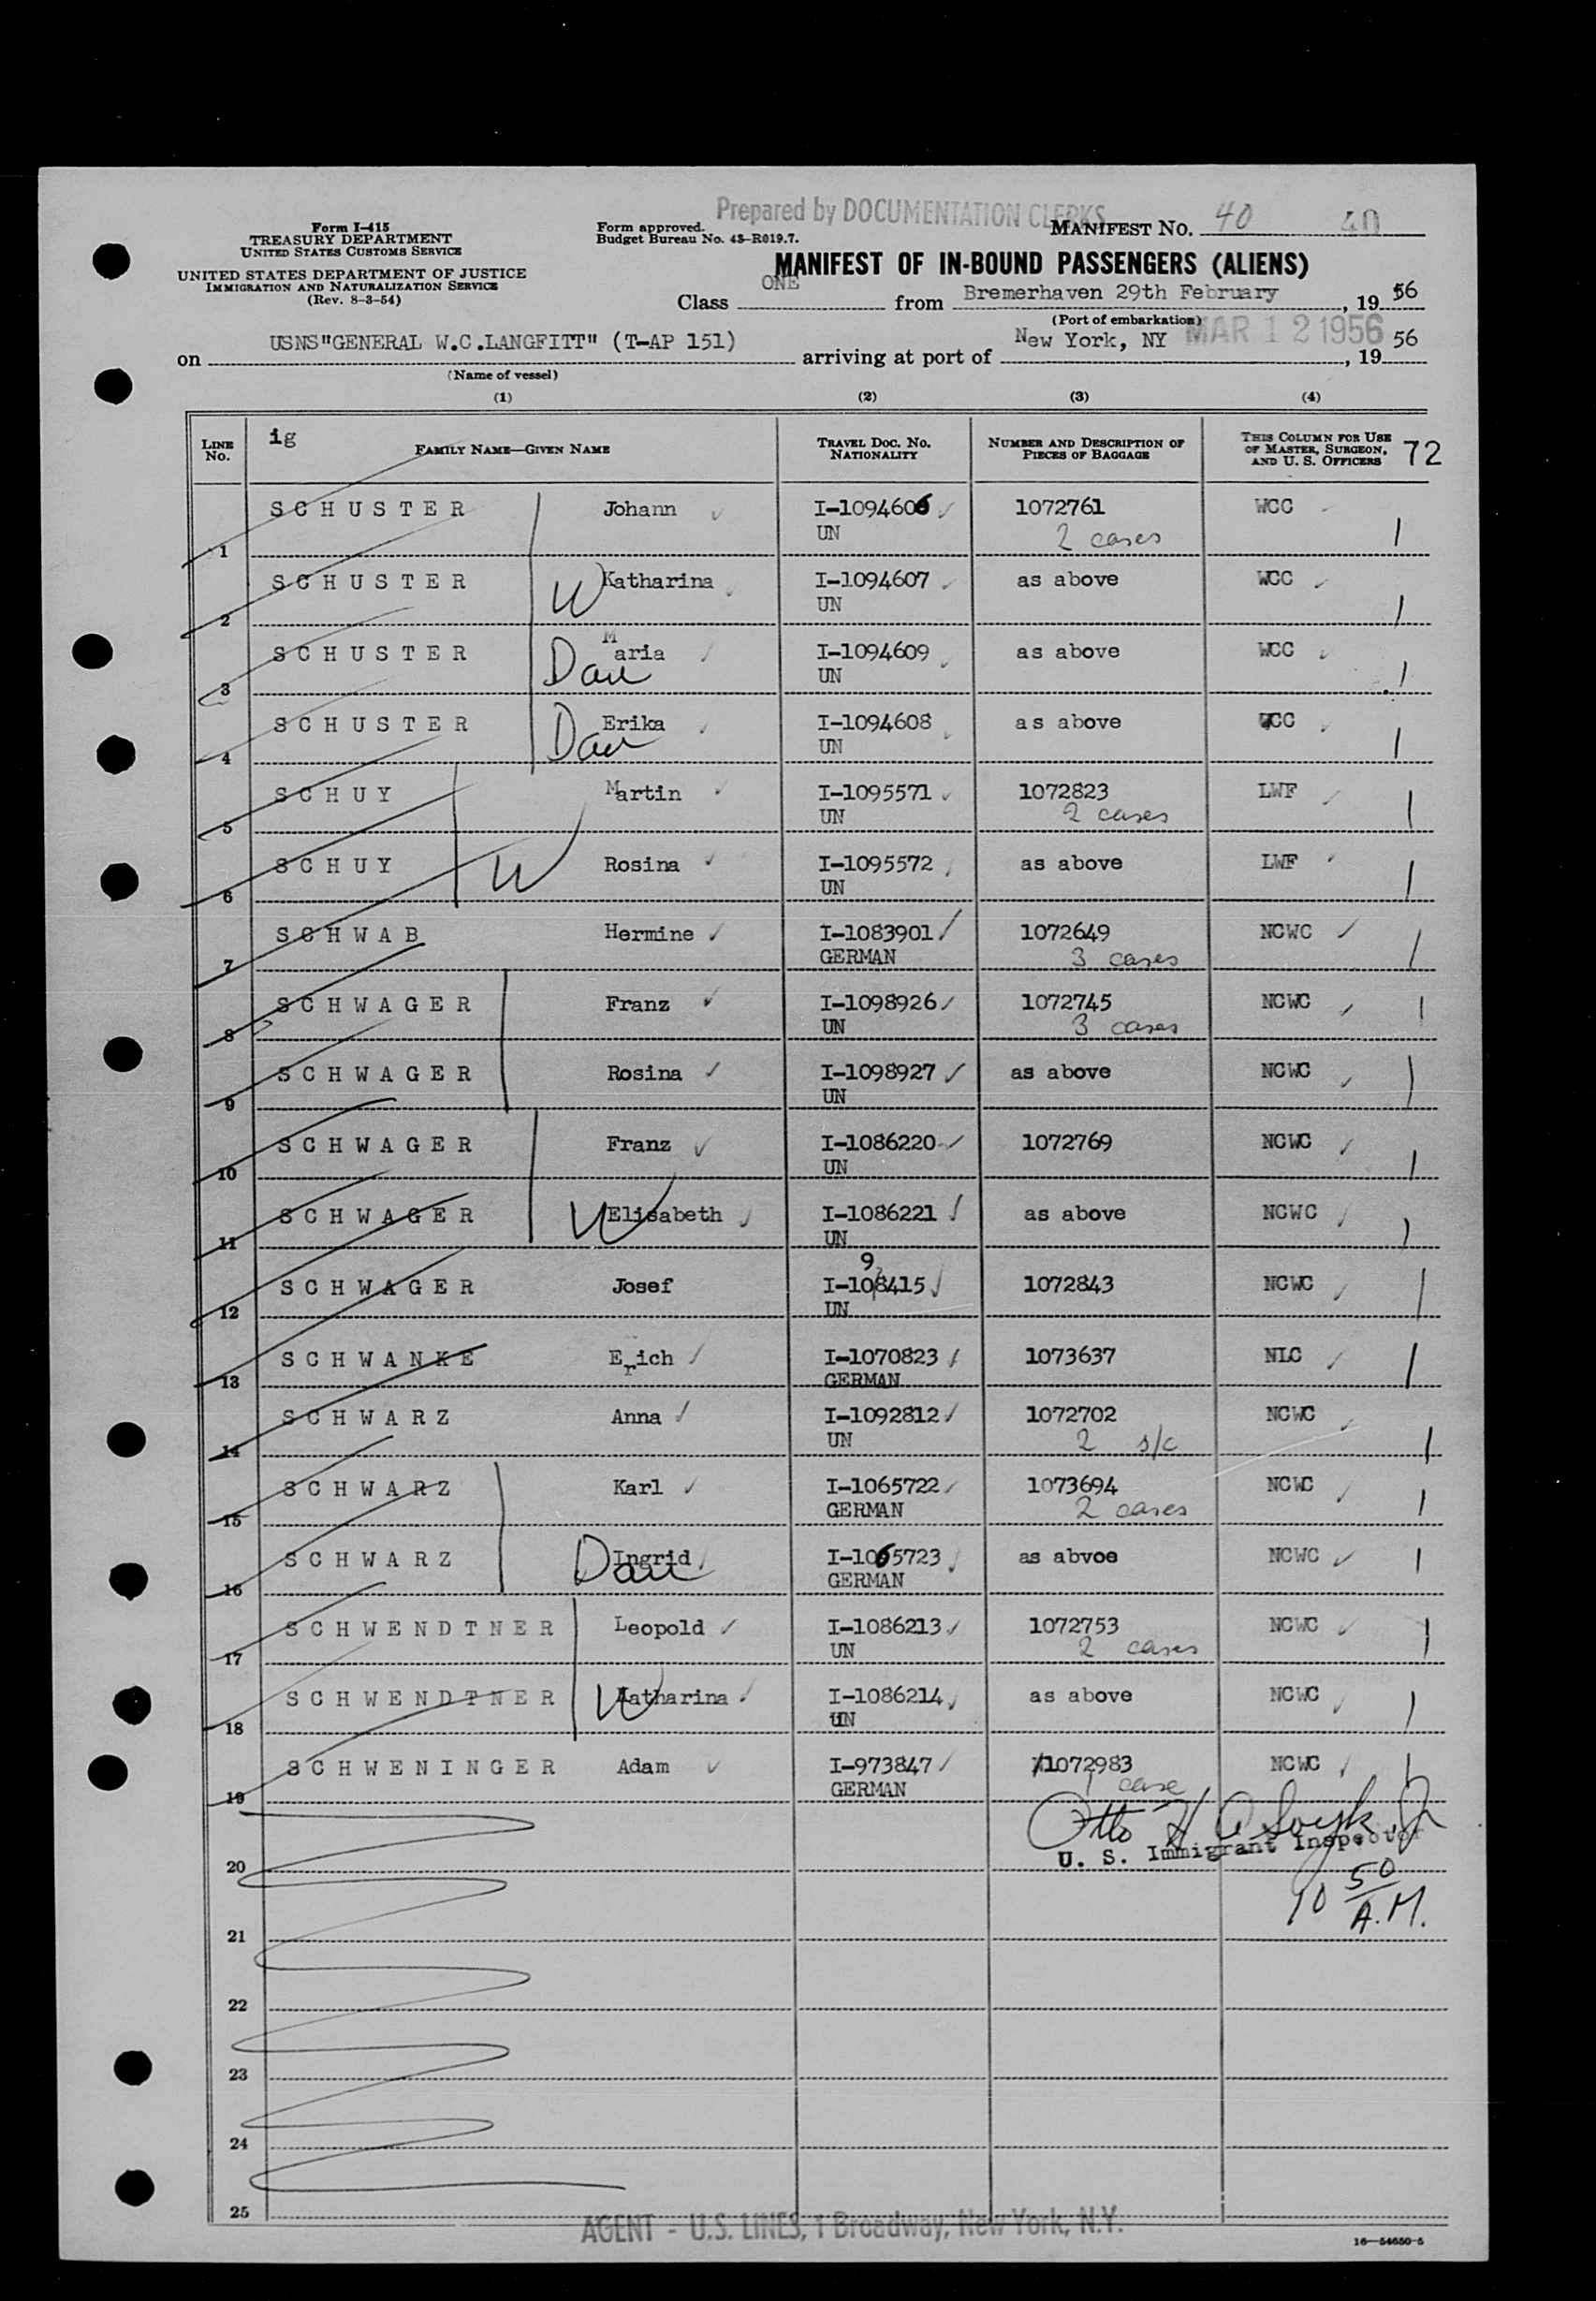 Prepared by DOCUMENTATION CLERKS
Form I-415
TREASURY DEPARTMENT
UNITED STATES CUSTOMS SERVICE
UNITED STATES DEPARTMENT OF JUSTICE
IMMIGRATION AND NATURALIZATION SERVICE
(Rev. 8-3-54)
Form approved.
Budget Bureau No. 43-R019.7.
MANIFEST NO. 40 40
MANIFEST OF IN-BOUND PASSENGERS (ALIENS)
Class ONE from Bremerhaven 29th February, 19 56
(Port of embarkation)
on USNS"GENERAL W.C.LANGFITT" (T-AP 151) arriving at port of New York, NY MAR 12 1956, 19 56
(Name of vessel)
(1) (2) (3) (4)
LINE No. ig FAMILY NAME—GIVEN NAME TRAVEL DOC. NO. NATIONALITY NUMBER AND DESCRIPTION OF PIECES OF BAGGAGE THIS COLUMN FOR USE OF MASTER, SURGEON, AND U. S. OFFICERS 72
1 SCHUSTER Johann I-1094606 1072761 WCC
UN 2 cases
2 SCHUSTER W Katharina I-1094607 as above WCC
UN
3 SCHUSTER Maria I-1094609 as above WCC
Dau UN
4 SCHUSTER Erika I-1094608 as above WCC
Dau UN
5 SCHUY Martin I-1095571 1072823 LWF
UN 2 cases
6 SCHUY W Rosina I-1095572 as above LWF
UN
7 SCHWAB Hermine I-1083901 1072649 NCWC
GERMAN 3 cases
8 SCHWAGER Franz I-1098926 1072745 NCWC
UN 3 cases
9 SCHWAGER Rosina I-1098927 as above NCWC
UN
10 SCHWAGER Franz I-1086220 1072769 NCWC
UN
11 SCHWAGER W Elisabeth I-1086221 as above NCWC
UN
9
12 SCHWAGER Josef I-108415 1072843 NCWC
UN
13 SCHWANKE Erich I-1070823 1073637 NLC
GERMAN
14 SCHWARZ Anna I-1092812 1072702 NCWC
UN 2 s/c
15 SCHWARZ Karl I-1065722 1073694 NCWC
GERMAN 2 cases
16 SCHWARZ Dau Ingrid I-1065723 as abvoe NCWC
GERMAN
17 SCHWENDTNER Leopold I-1086213 1072753 NCWC
UN 2 cases
18 SCHWENDTNER W Katharina I-1086214 as above NCWC
UN
19 SCHWENINGER Adam I-973847 1072983 NCWC
GERMAN 1 case
Otto
U. S. Immigrant Inspector
20
10 50 A.M.
21
22
23
24
25
AGENT - U.S. LINES, 1 Broadway, New York, N.Y.
16—54650-5